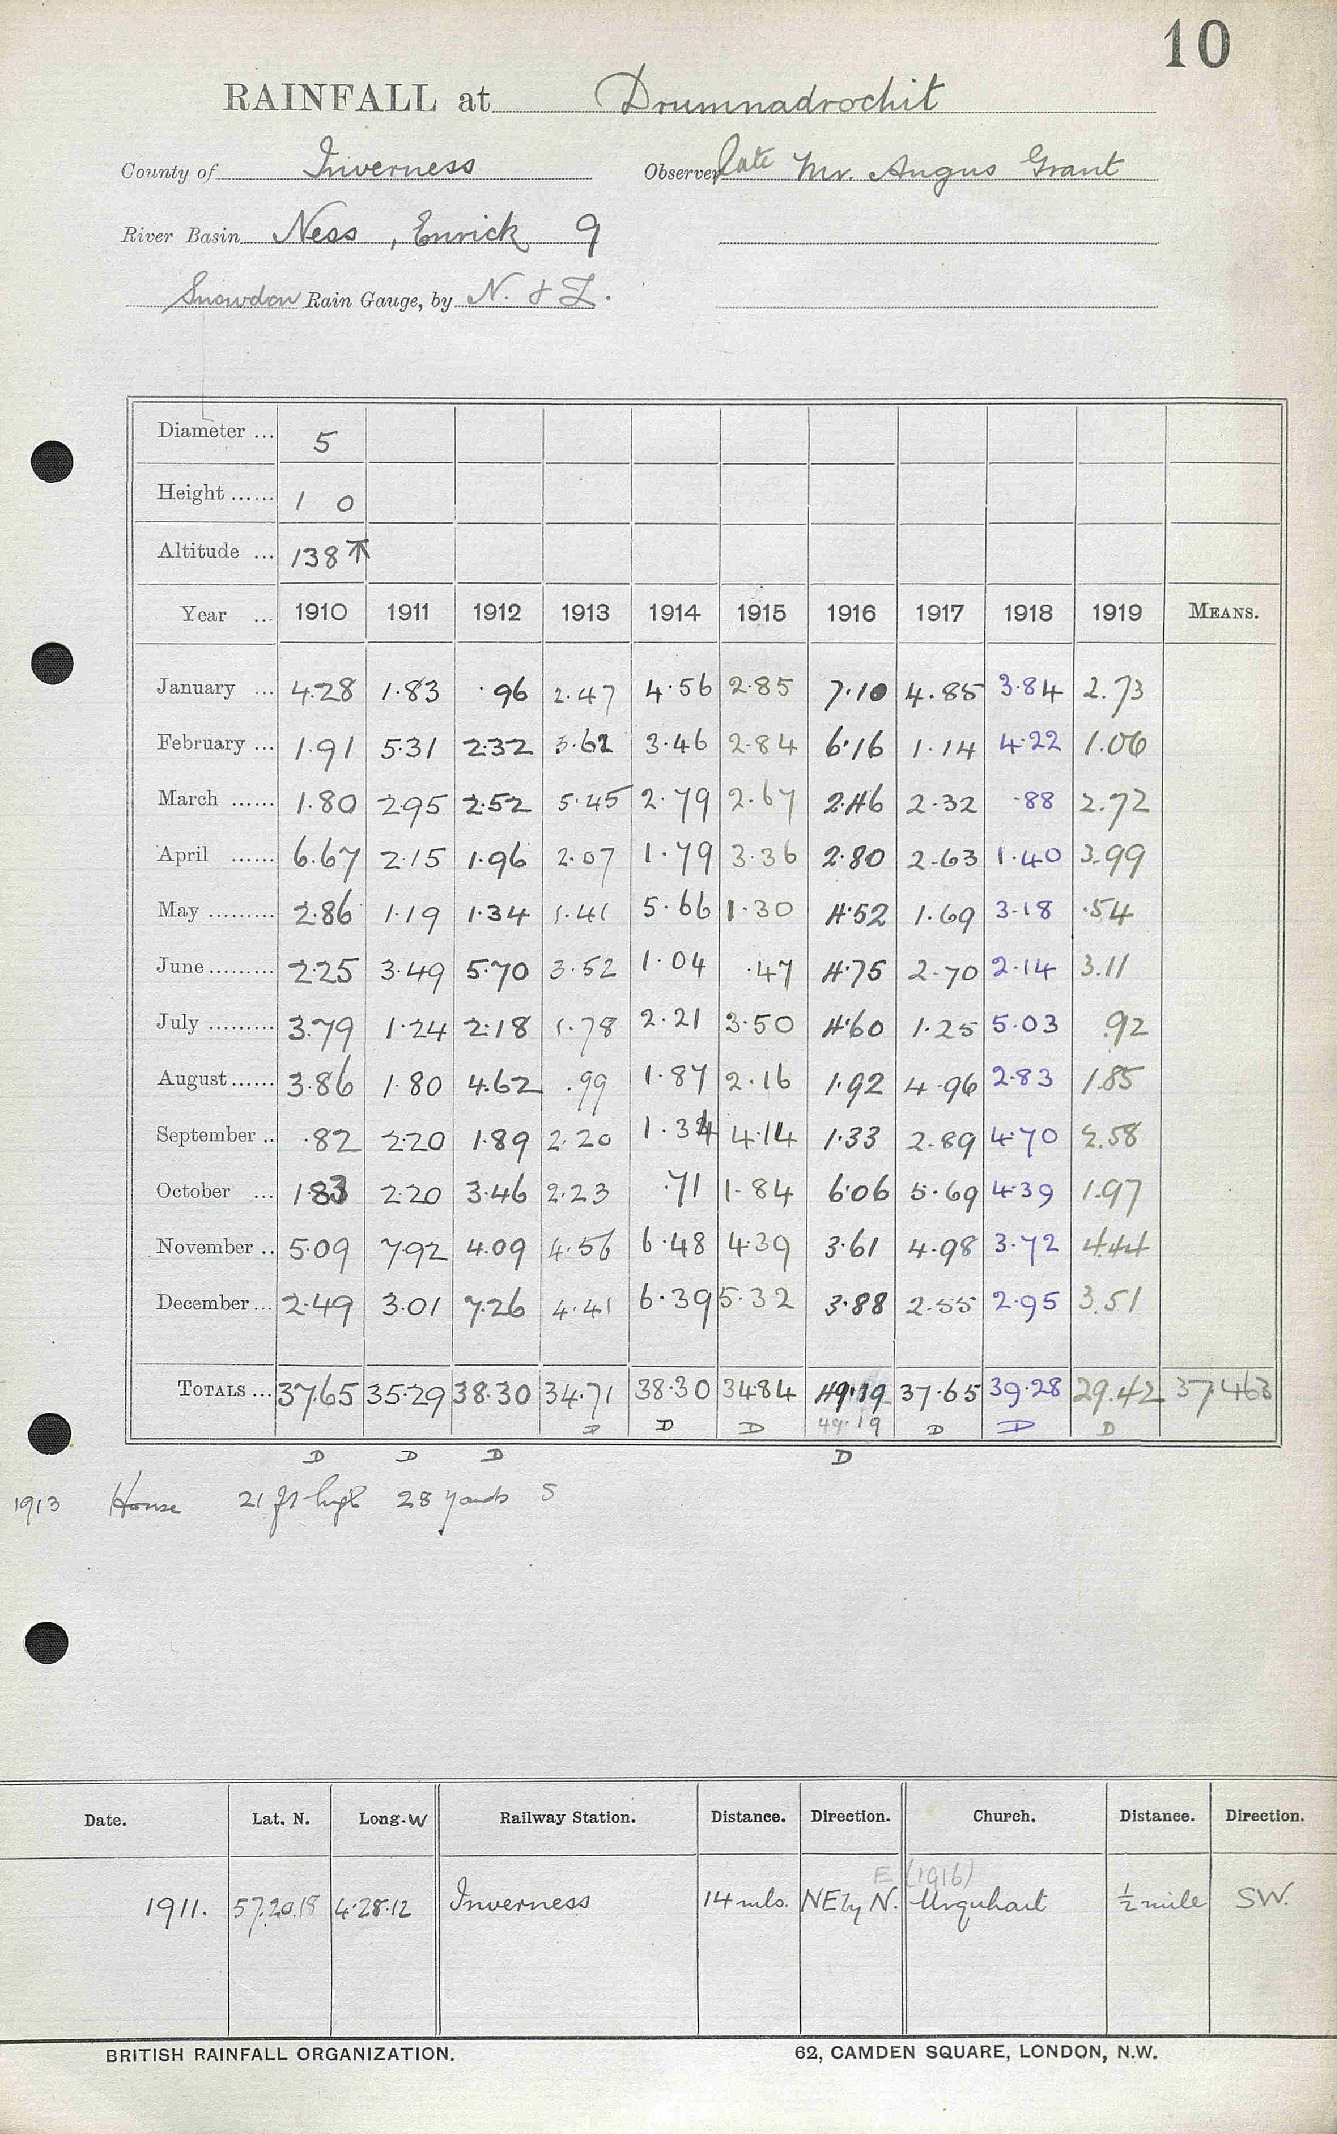 10
RAINFALL at Drumnadrochit
County of Inverness Observer late Mr. Angus Grant
River Basin Ness, Enrick 9
Snowdon Rain Gauge, by N. & Z.
Diameter ... 5
Height ...... 1 0
Altitude ... 138 ↑
Year ... 1910 1911 1912 1913 1914 1915 1916 1917 1918 1919 MEANS.
January ... 4.28 1.83 .96 2.47 4.56 2.85 7.10 4.85 3.84 2.73
February ... 1.91 5.31 2.32 3.62 3.46 2.84 6.16 1.14 4.22 1.06
March ...... 1.80 2.95 2.52 5.45 2.79 2.67 2.46 2.32 .88 2.72
April ...... 6.67 2.15 1.96 2.07 1.79 3.36 2.80 2.63 1.40 3.99
May ......... 2.86 1.19 1.34 1.41 5.66 1.30 4.52 1.69 3.18 .54
June ......... 2.25 3.49 5.70 3.52 1.04 .47 4.75 2.70 2.14 3.11
July ......... 3.79 1.24 2.18 1.78 2.21 3.50 4.60 1.25 5.03 .92
August ...... 3.86 1.80 4.62 .99 1.87 2.16 1.92 4.96 2.83 1.85
September .. .82 2.20 1.89 2.20 1.34 4.14 1.33 2.89 4.70 2.58
October ... 1.83 2.20 3.46 2.23 .71 1.84 6.06 5.69 4.39 1.97
November .. 5.09 7.92 4.09 4.56 6.48 4.39 3.61 4.98 3.72 4.44
December ... 2.49 3.01 7.26 4.41 6.39 5.32 3.88 2.55 2.95 3.51
TOTALS ... 37.65 35.29 38.30 34.71 38.30 34.84 49.19 37.65 39.28 29.42 37.463
D D D 49.19 D D D
D D D D
1913 House 21 ft high 28 yards S
Date. Lat. N. Long. W Railway Station. Distance. Direction. Church. Distance. Direction.
E (1916)
1911. 57.20.18 4.28.12 Inverness 14 mls. NE by N. Urquhart ½ mile SW.
BRITISH RAINFALL ORGANIZATION. 62, CAMDEN SQUARE, LONDON, N.W.